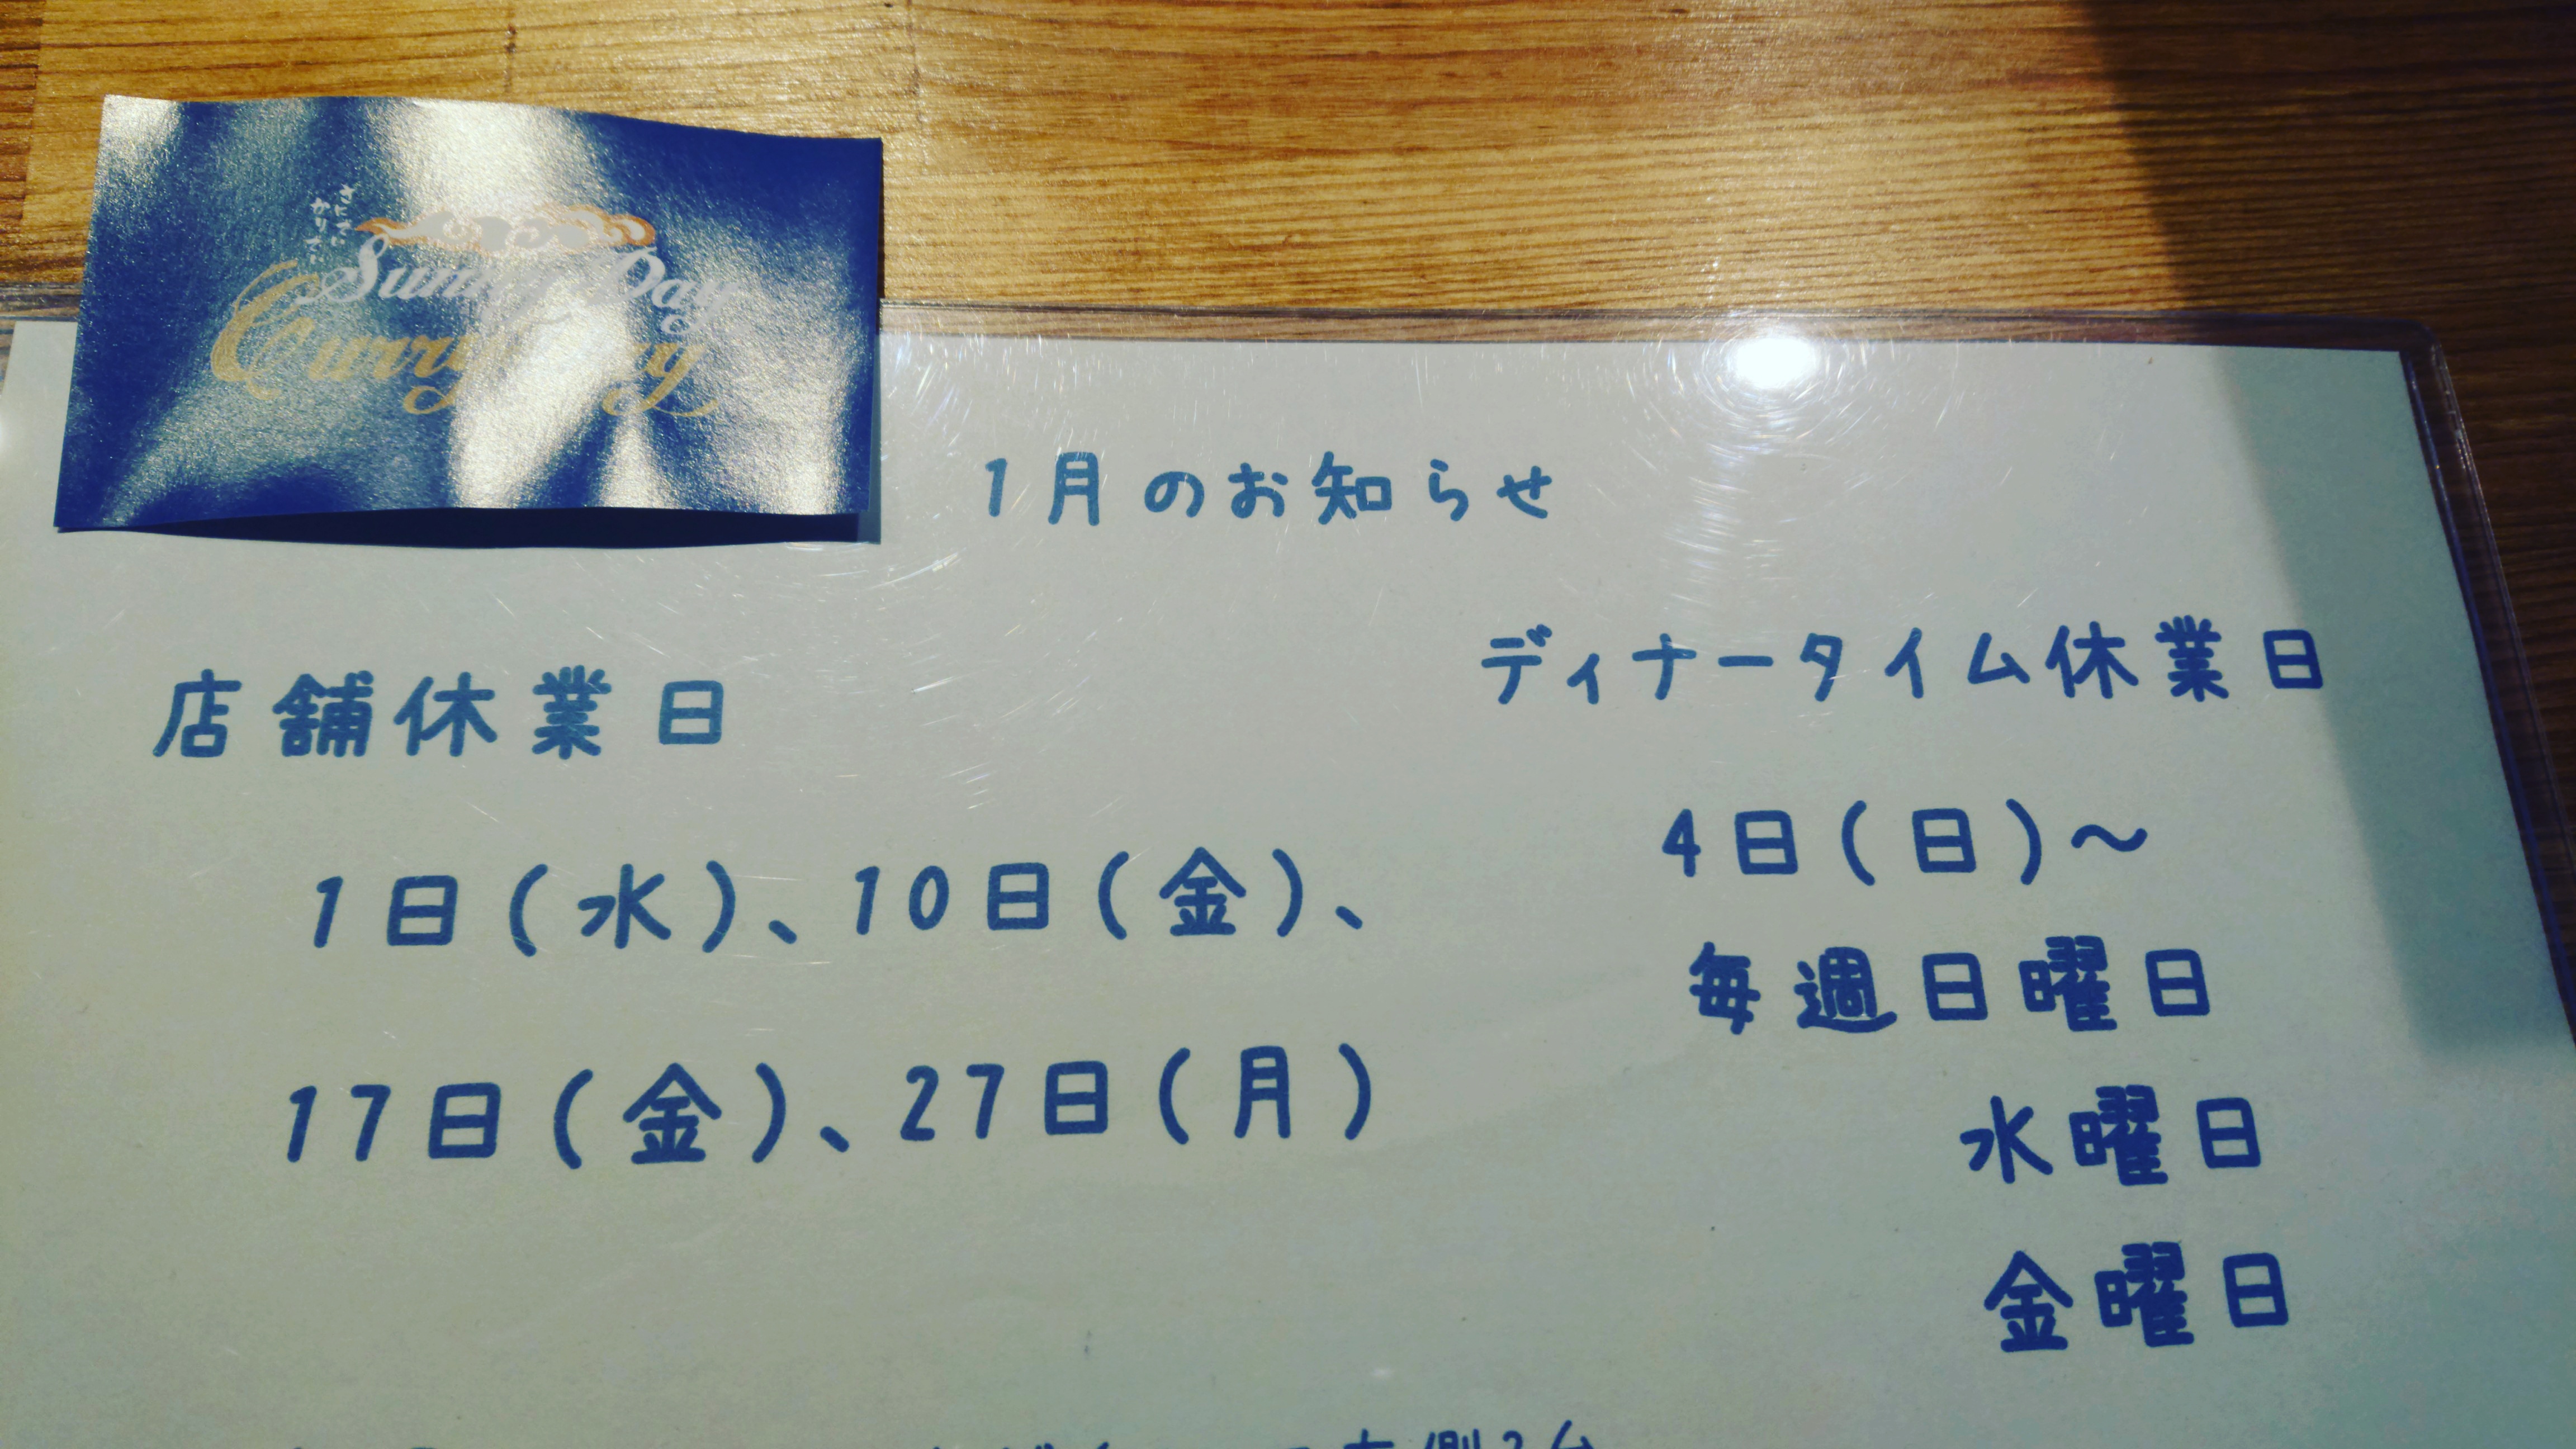 Sunny Day
Curry Day
1月のお知らせ
店舗休業日
1日(水)、10日(金)、
17日(金)、27日(月)
ディナータイム休業日
4日(日)～
毎週日曜日
水曜日
金曜日